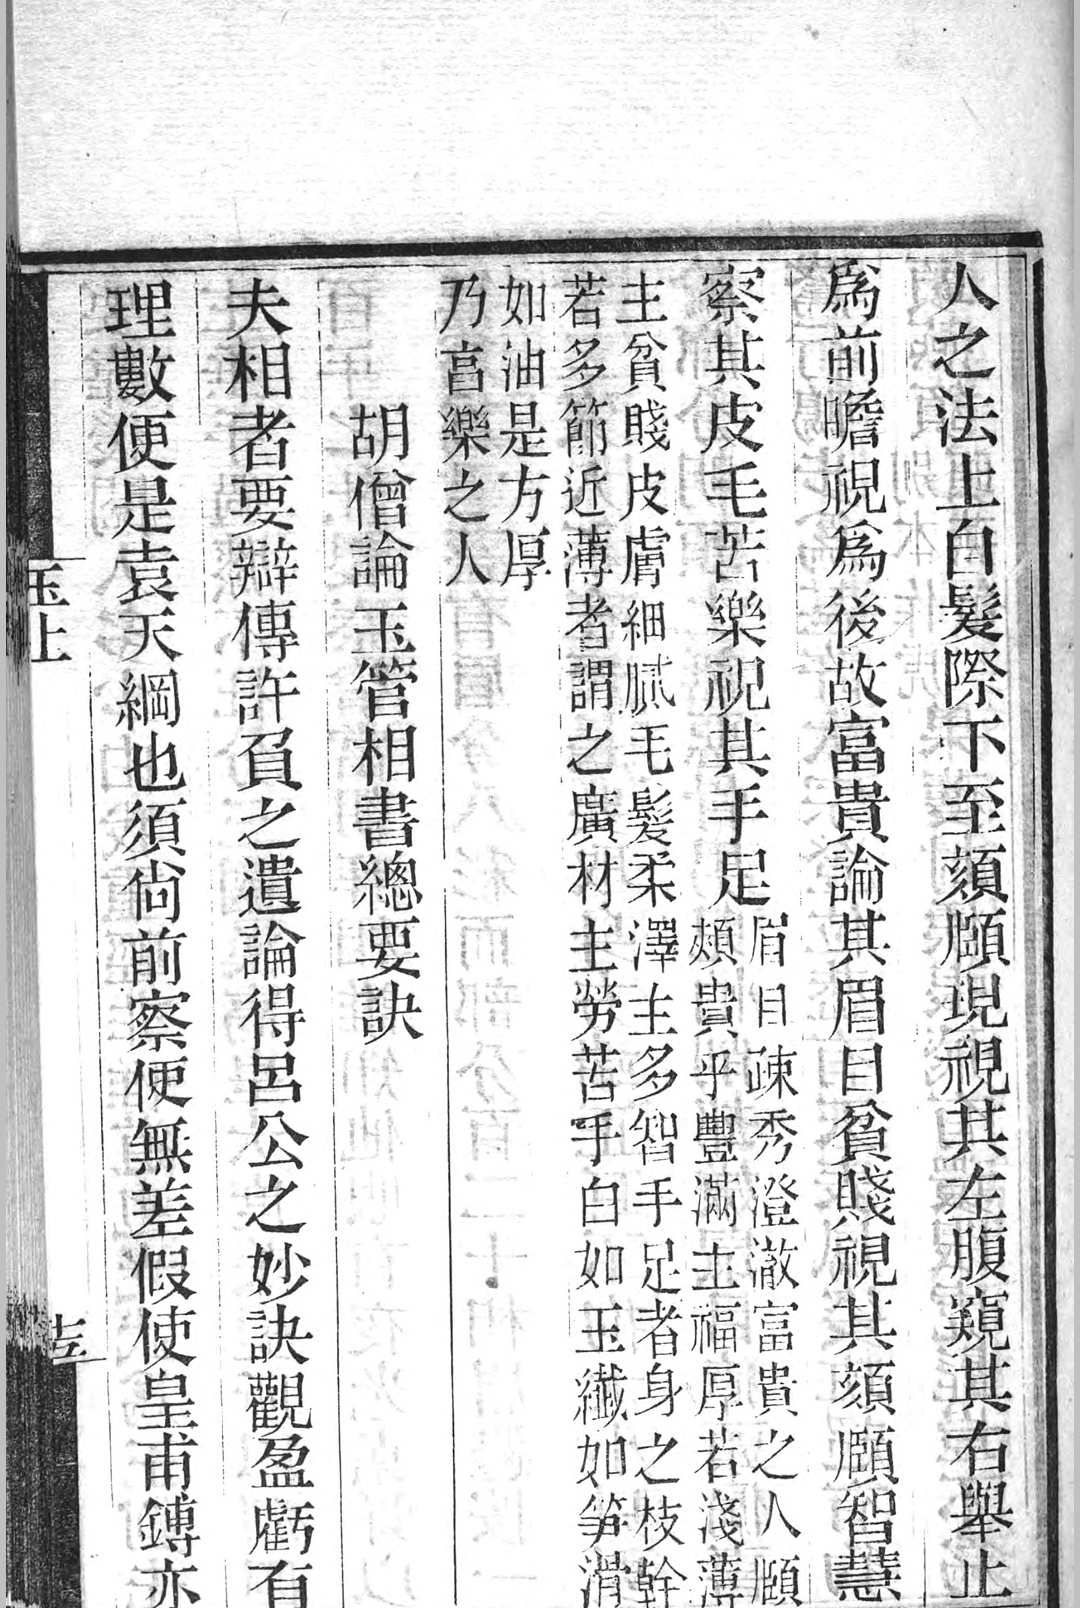 人之法上自髮際下至頦頤現視其左腹窺其右舉止
爲前瞻視爲後故富貴論其眉目貧賤視其頦頤智慧
察其皮毛苦樂視其手足
眉目疎秀澄澈富貴之人頤
頰貴乎豐滿主福厚若淺薄
主貧賤皮膚細膩毛髮柔澤主多智手足者身之枝幹
若多節近薄者謂之廣材主勞苦手白如玉纎如笋滑
如油是方厚
乃富樂之人
胡僧論玉管相書總要訣
夫相者要辯傳許負之遺論得呂公之妙訣觀盈虧有
理數便是袁天綱也須尙前察便無差假使皇甫鎛亦
玉上